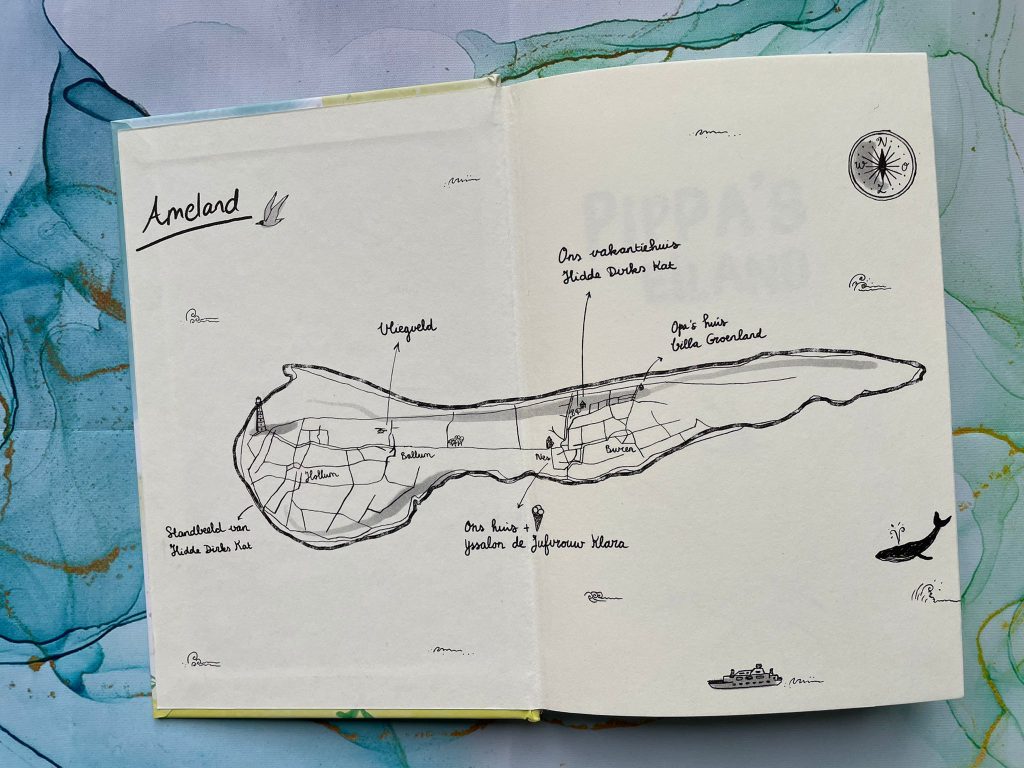 Ameland
N
W
O
Z
Ons vakantiehuis
Hidde Dirks Kat
Vliegveld
Opa's huis
Villa Groenland
Ballum
Nes
Buren
Hollum
Standbeeld van
Hidde Dirks Kat
Ons huis +
Yssalon de Jufvrouw Klara
PIPPA'S
EILAND